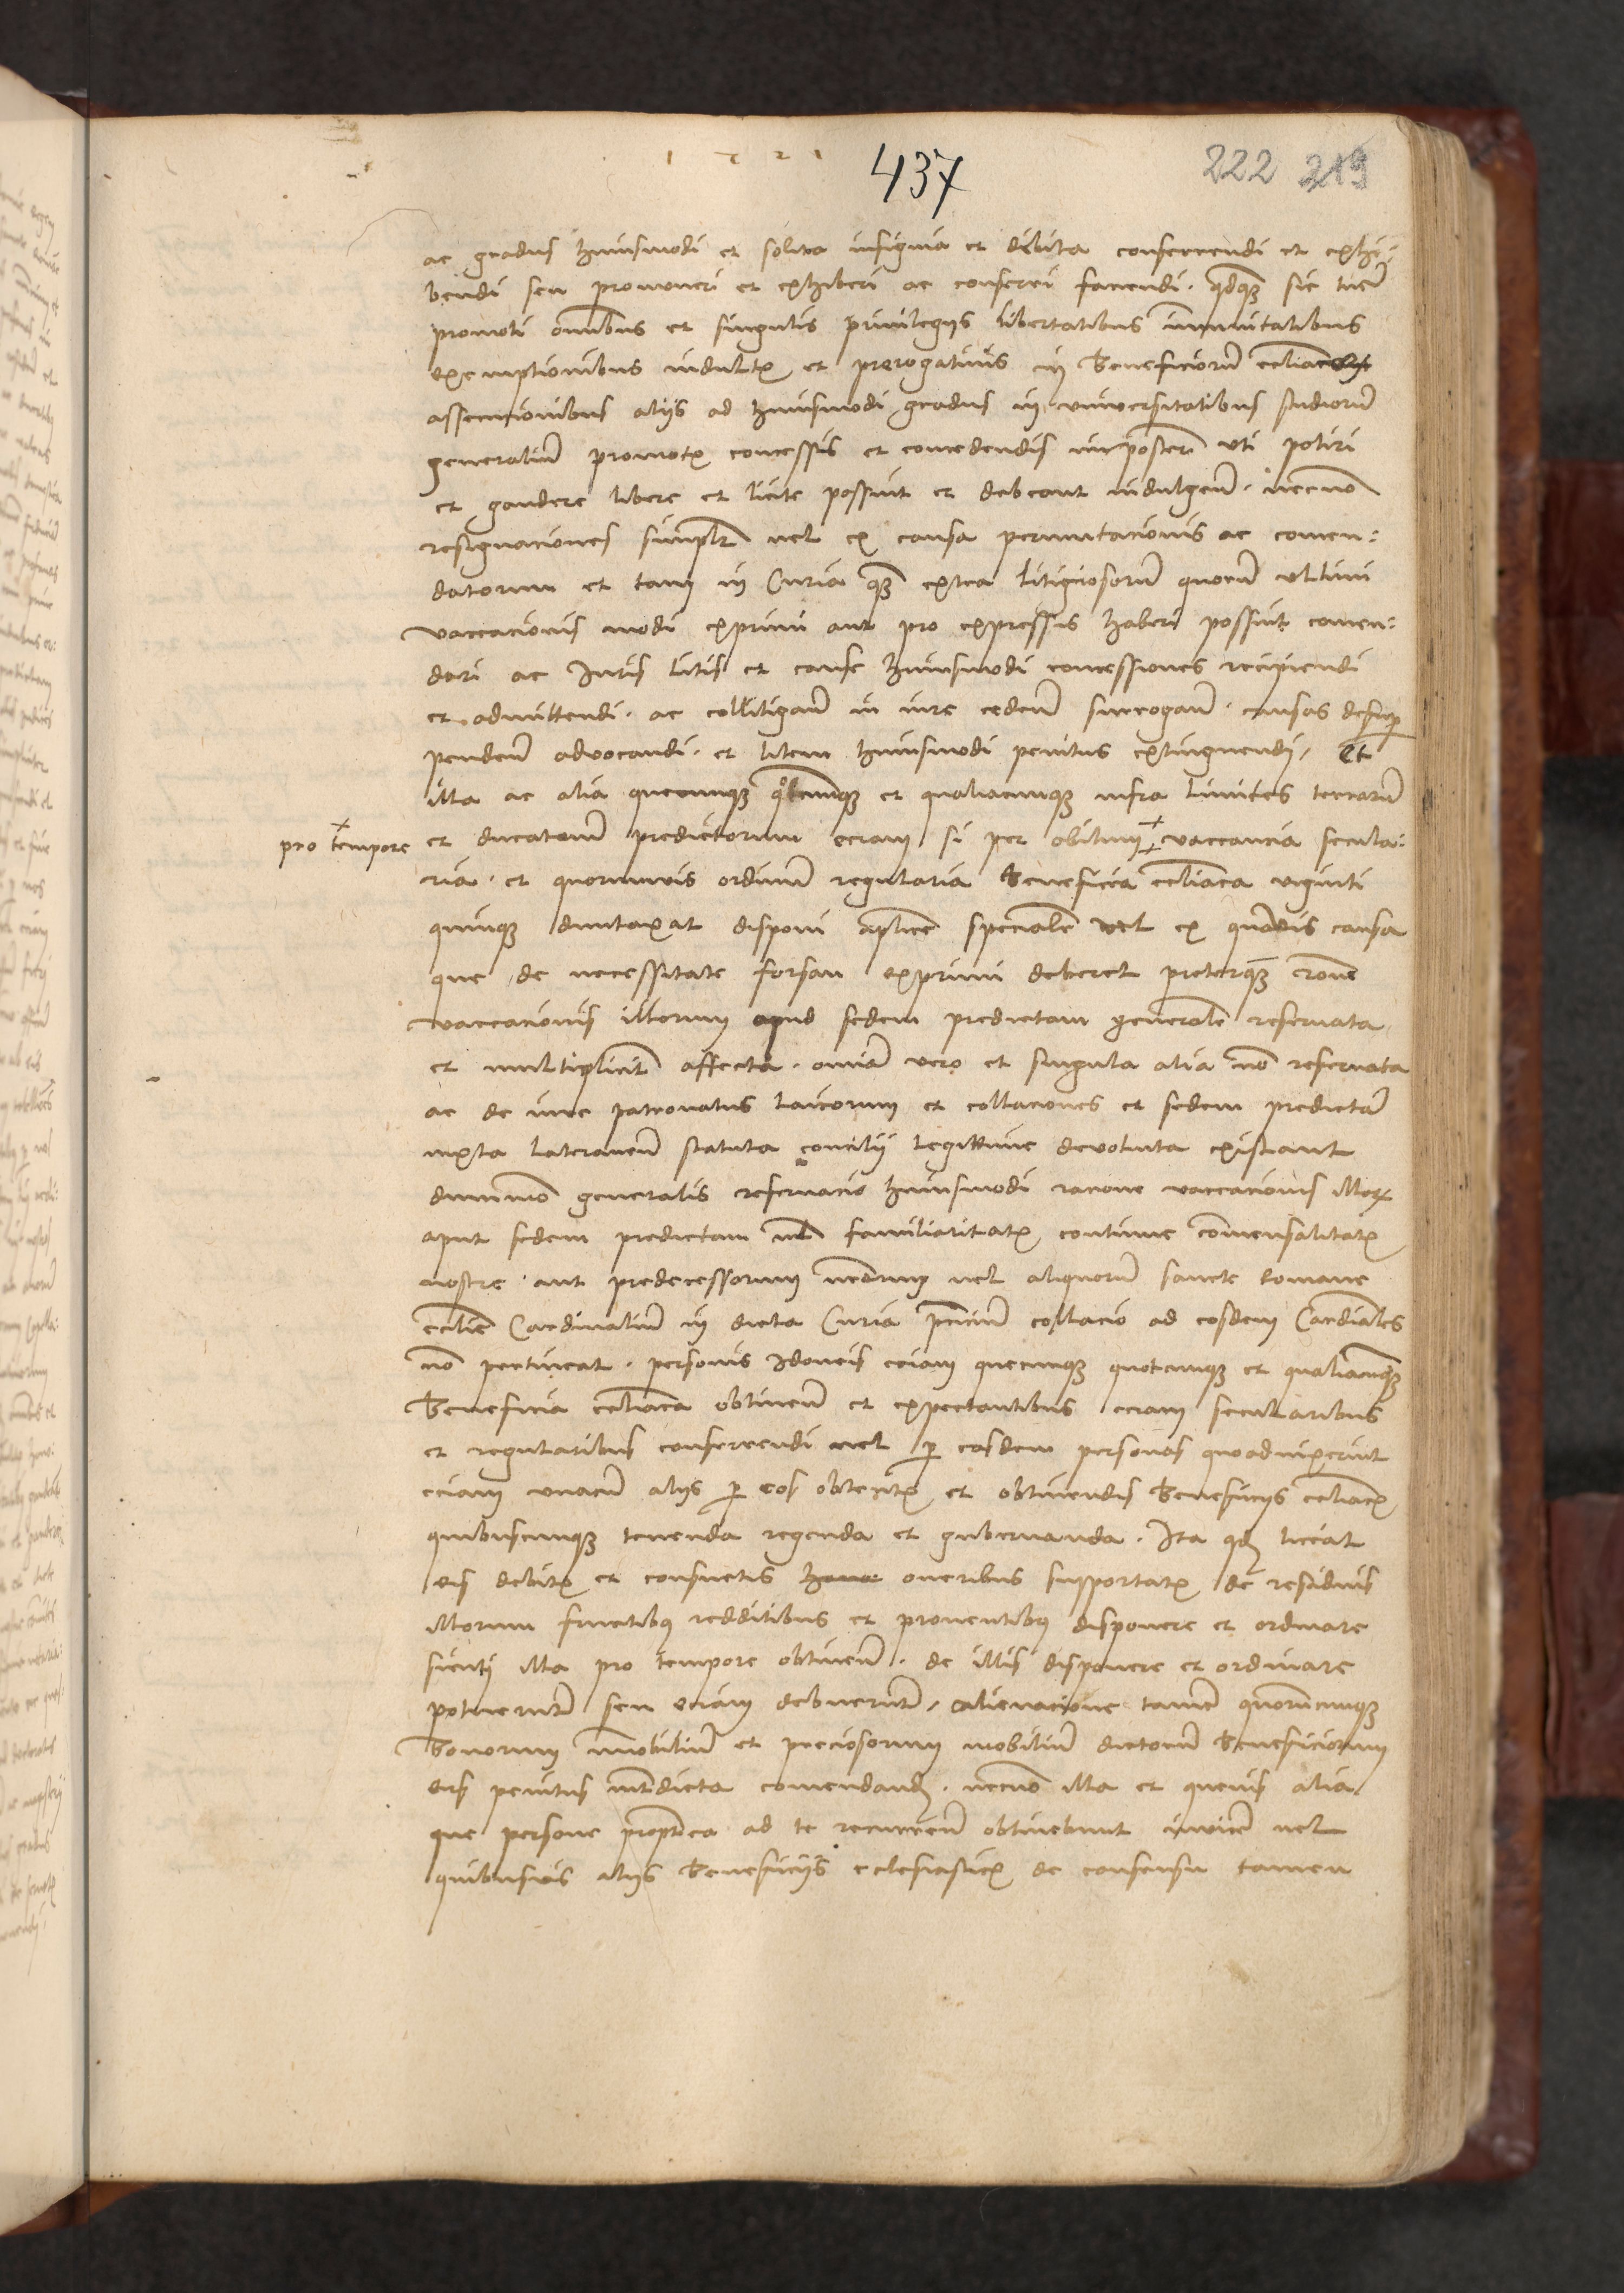 1521
437
222 219
ac gradus huiusmodi et solita insignia et debita conferrendi et exhi-
bendi seu promoueri et exhiberi ac conferri faciendi. qdq sic
promoti omibus et singulis priuilegijs libertatibus immunitatibus
exemptionibus indultis et prerogatiuis in beneficiorum
assecucionibus alijs ad huiusmodi gradus in vniuersitatibus studiorum
generalium promotis concessis et concedendis imposterum vti potiri
et gaudere libere et licite possint et debeant indulgend. necno
resignaciones simplr uel ex causa permutacionis ac comen:
datorum et tam in Curia q extra litigiosorum quorum vltimi
vaccacionis modi exprimi aut pro expressis haberi possint comen:
dari ac Iuris litis et cause huiusmodi concessiones recipiendi
et admittendi. ac collitigan in iure ceden surrogan. causas desup
penden advocandi. et litem huiusmodi penitus extinguendi. Et
illa ac alia quecumq qotcumq et qualiacumq infra limites terrarum
pro tempore
et ducatuum predictorum eciam si per obitum vaccancia secula:
ria. et quorumuis ordinum regularia beneficia eccliaca viginti
quinq duntaxat disponi aplice speciale uel ex quauis causa
que de necessitate forsan exprimi deberet preterq rone
vaccacionis illorum apud sedem predictam generale reseruata
et multiplicit affecta. omia vero et singula alia no reseruata
ac de iure patronatus laicorum et collaciones et sedem predictam
iuxta lateranen statuta concilij legittime devoluta existant
dummo generalis reseruacio huiusmodi racione vaccacionis illor
aput sedem predictam uel familiaritatis continue comensalitatis
nostre aut predecessorum nrorum uel aliquorum sancte Romane
ecclie Cardinalium in dicta Curia collacio ad eosdem Cardinales
no pertineat. personis Idoneis eciam quecumq quotcumq et qualiacumq
beneficia eccliaca obtinen et expectantibus eciam secularibus
et regularibus conferrendi uel p easdem personas quoadvixerint
eciam vnacum alijs p eos obtentis et obtinendis beneficijs eccliacis
quibuscumq tenenda regenda et gubernanda. Ita qd liceat
eis debitis et consuetis oneribus supportatis de residuis
illorum fructibus redditibus et prouentibus disponere et ordinare
sicuti illa pro tempore obtinen. de illis disponere et ordinare
potuerunt seu eciam debuerunt. alienacione tame quorumcumq
bonorum immobilium et preciosorum mobilium dictorum beneficiorum
eis penitus intdicta comendand. necno illa et queuis alia
que persone propterea ad te recurren obtinebunt inuice uel
quibusuis alijs beneficijs eclesiasticis de consensu tamen